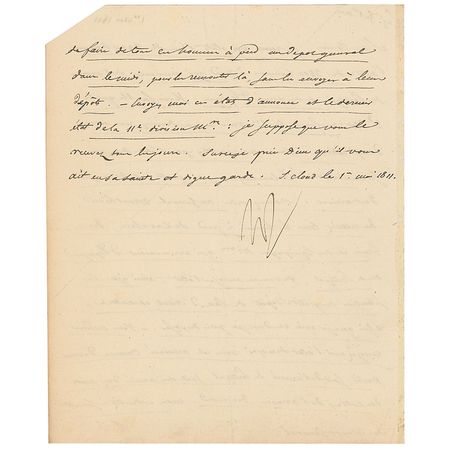 de faire de tous ces hommes à pied un depot general
dans le midi, pour les remonter là sans les envoyer à leurs
dépôts. – Envoyez moi cet état d'annonce et le dernier
état de la 11e division Mre: je suppose que vous le
recevez tous les jours. Sur ce je prie Dieu qu'il vous
ait en sa sainte et digne garde. S. cloud le 1er mai 1811.